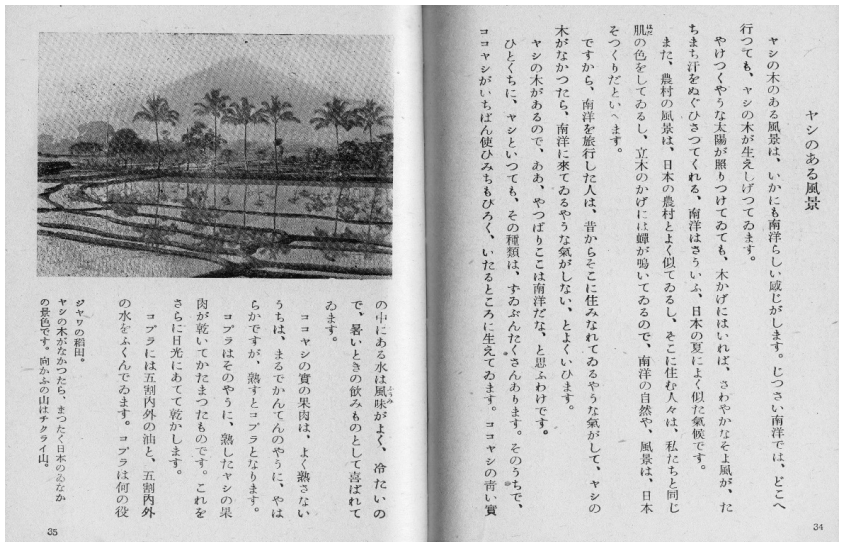 ヤシのある風景
ヤシの木のある風景は、いかにも南洋らしい感じがします。じつさい南洋では、どこへ
行つても、ヤシの木が生えしげつてゐます。
やけつくやうな太陽が照りつけてゐても、木かげにはいれば、さわやかなそよ風が、た
ちまち汗をぬぐひさつてくれる、南洋はさういふ、日本の夏によく似た氣候です。
また、農村の風景は、日本の農村とよく似てゐるし、そこに住む人々は、私たちと同じ
肌の色をしてゐるし、立木のかげには蟬が鳴いてゐるので、南洋の自然や、風景は、日本
そつくりだといへます。
ですから、南洋を旅行した人は、昔からそこに住みなれてゐるやうな氣がして、ヤシの
木がなかつたら、南洋に來てゐるやうな氣がしない、とよくいひます。
ヤシの木があるので、ああ、やつぱりここは南洋だな、と思ふわけです。
ひとくちに、ヤシといつても、その種類は、ずゐぶんたくさんあります。そのうちで、
ココヤシがいちばん使ひみちもひろく、いたるところに生えてゐます。ココヤシの靑い實
34
の中にある水は風味がよく、冷たいの
で、暑いときの飲みものとして喜ばれて
ゐます。
ココヤシの實の果肉は、よく熟さない
うちは、まるでかんてんのやうに、やは
らかですが、熟すとコプラとなります。
コプラはそのやうに、熟したヤシの果
肉が乾いてかたまつたものです。これを
さらに日光にあてて乾かします。
コプラには五割内外の油と、五割内外
の水をふくんでゐます。コプラは何の役
ジャワの稻田。
ヤシの木がなかつたら、まつたく日本のゐなか
の景色です。向かふの山はチクライ山。
35